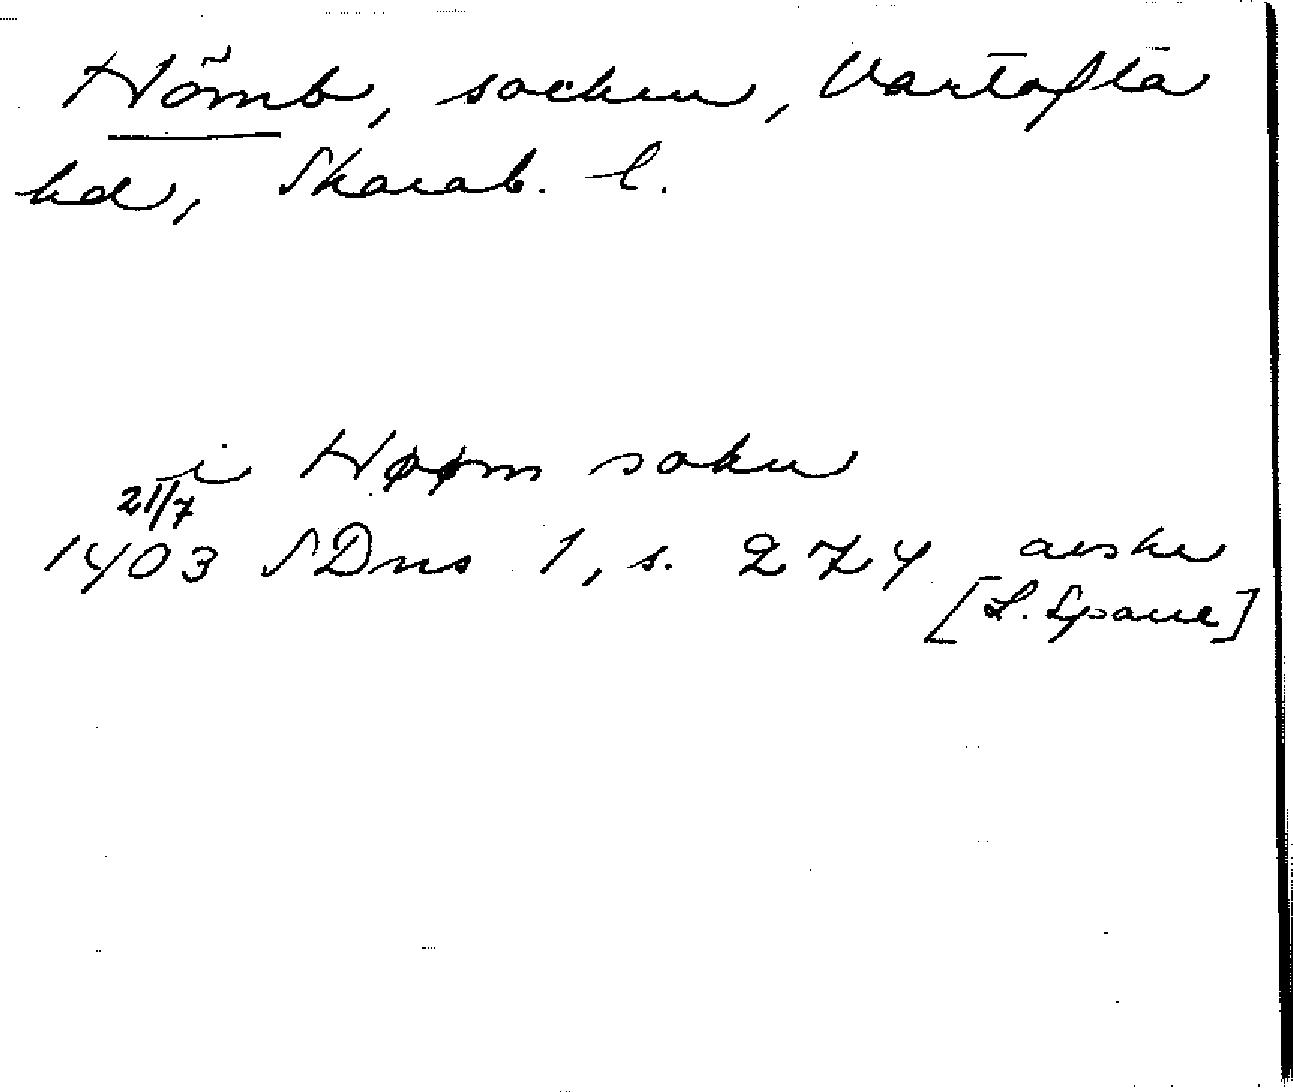 Hömb, socken, Vartofta
hd, Skarab. l.
i Høøm sokn
21/7
1403 SDns 1, s. 274 avskr
[L. Spane]